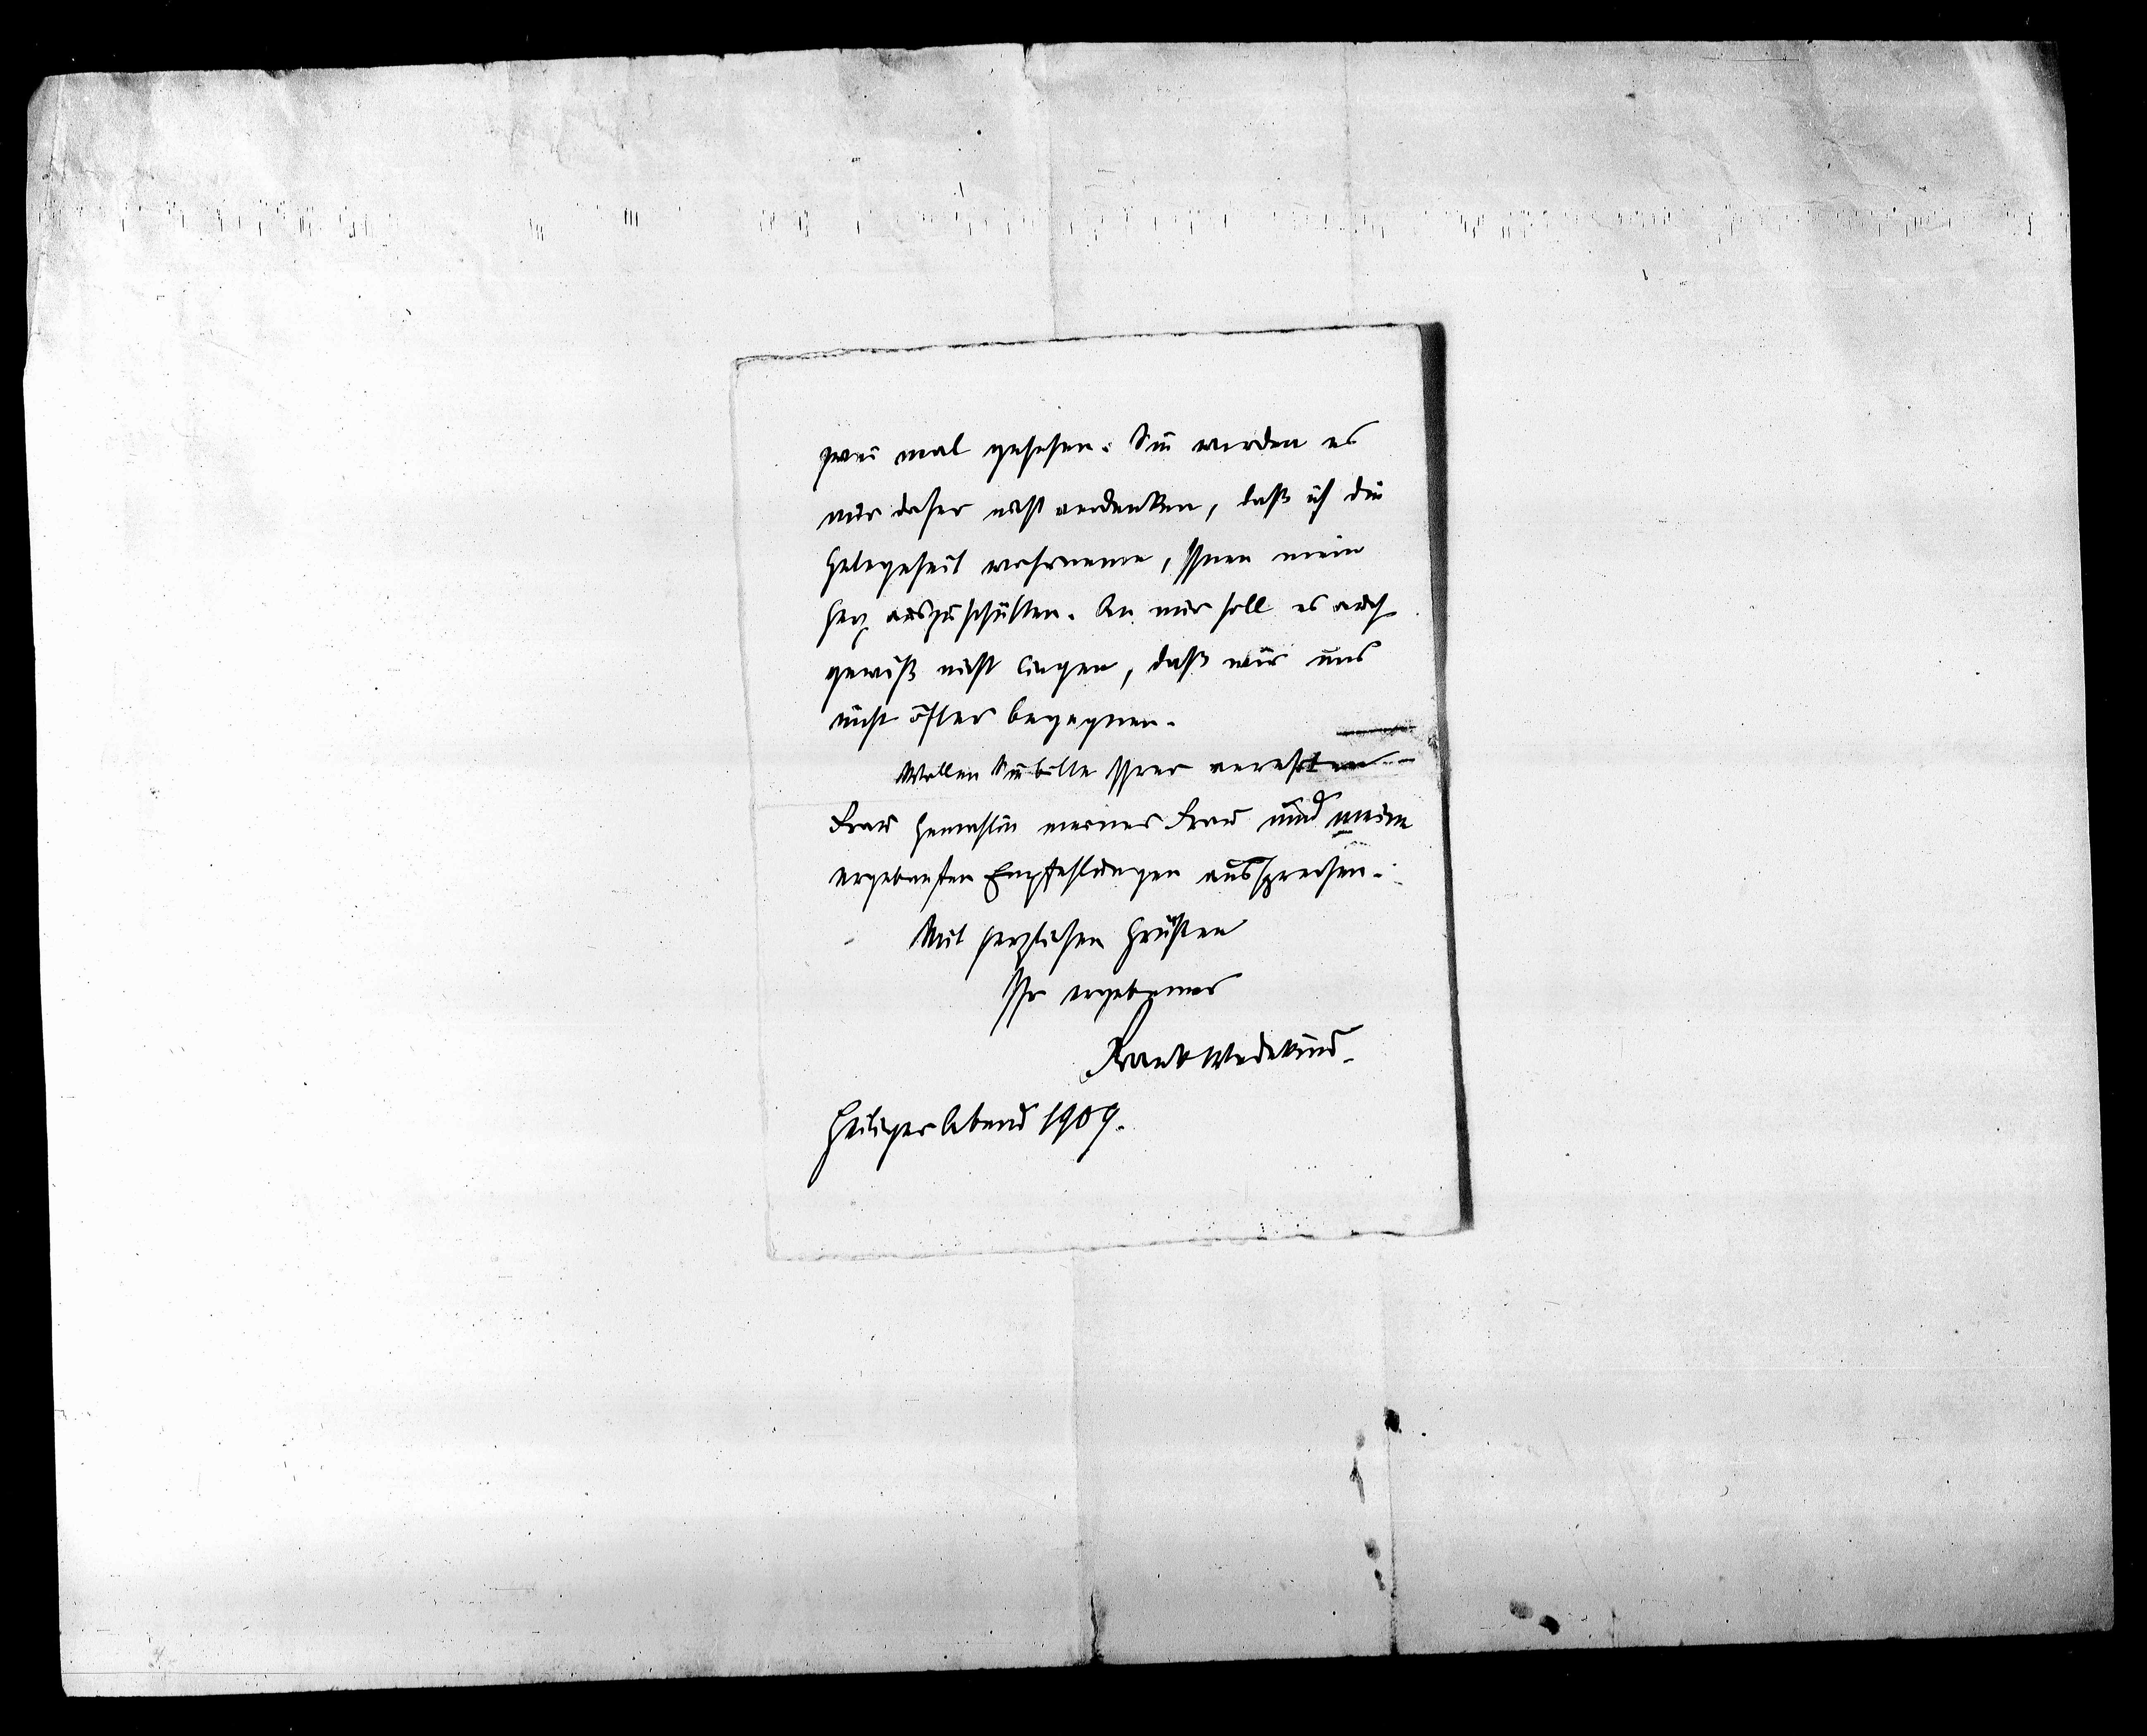 zwei mal gesehen. Sie werden es
mir daher nicht verdenken, daß ich die
Gelegeheit wahrneme, Ihnen mein
Herz auszuschütten. An mir soll es auch
gewiß nicht liegen, daß wir uns
nicht öfter begegnen.
Wollen Sie bitte Ihrer verehrten
Frau Gemahlin meiner Frau und meine
ergebensten Empfehlungen aussprechen.
Mit herzlichen Grüßen
Ihr ergebener
Frank Wedekind.
Heiliger Abend 1909.